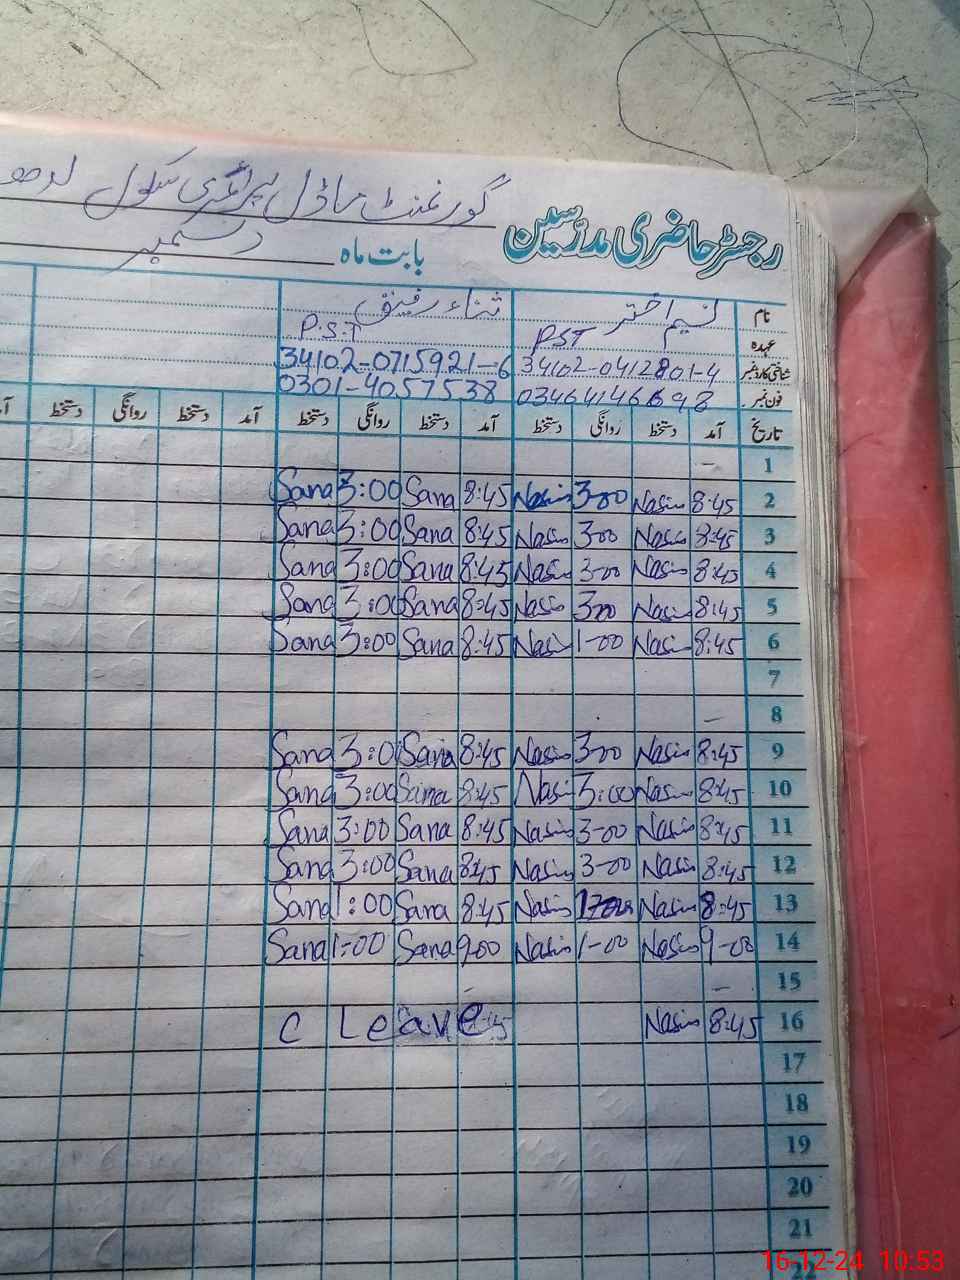 گورنمنٹ ماڈل پرائمری سکول
رجسٹر حاضری مدرسین
بابت ماہ دسمبر
نام نسیم اختر ثناء رفیق
عہدہ PST P.S.T
شناختی کارڈ نمبر 34102-0412801-4 34102-0715921-6
فون نمبر 03464146698 0301-4057538
تاریخ آمد دستخط روانگی دستخط آمد دستخط روانگی دستخط آمد دستخط روانگی دستخط
1 –
2 8:45 Nasim 3-00 Nasim 8:45 Sana 3:00 Sana
3 8:45 Nasim 3-00 Nasim 8:45 Sana 3:00 Sana
4 8:45 Nasim 3-00 Nasim 8:45 Sana 3:00 Sana
5 8:45 Nasim 3-00 Nasim 8:45 Sana 3:00 Sana
6 8:45 Nasim 1-00 Nasim 8:45 Sana 3:00 Sana
7
8 –
9 8:45 Nasim 3-00 Nasim 8:45 Sana 3:00 Sana
10 8:45 Nasim 3:00 Nasim 8:45 Sana 3:00 Sana
11 8:45 Nasim 3-00 Nasim 8:45 Sana 3:00 Sana
12 8:45 Nasim 3-00 Nasim 8:45 Sana 3:00 Sana
13 8:45 Nasim Nasim 8:45 Sana 1:00 Sana
14 9-00 Nasim 1-00 Nasim 9-00 Sana 1:00 Sana
15 –
16 8:45 Nasim C Leave
17
18
19
20
21
16-12-24 10:53